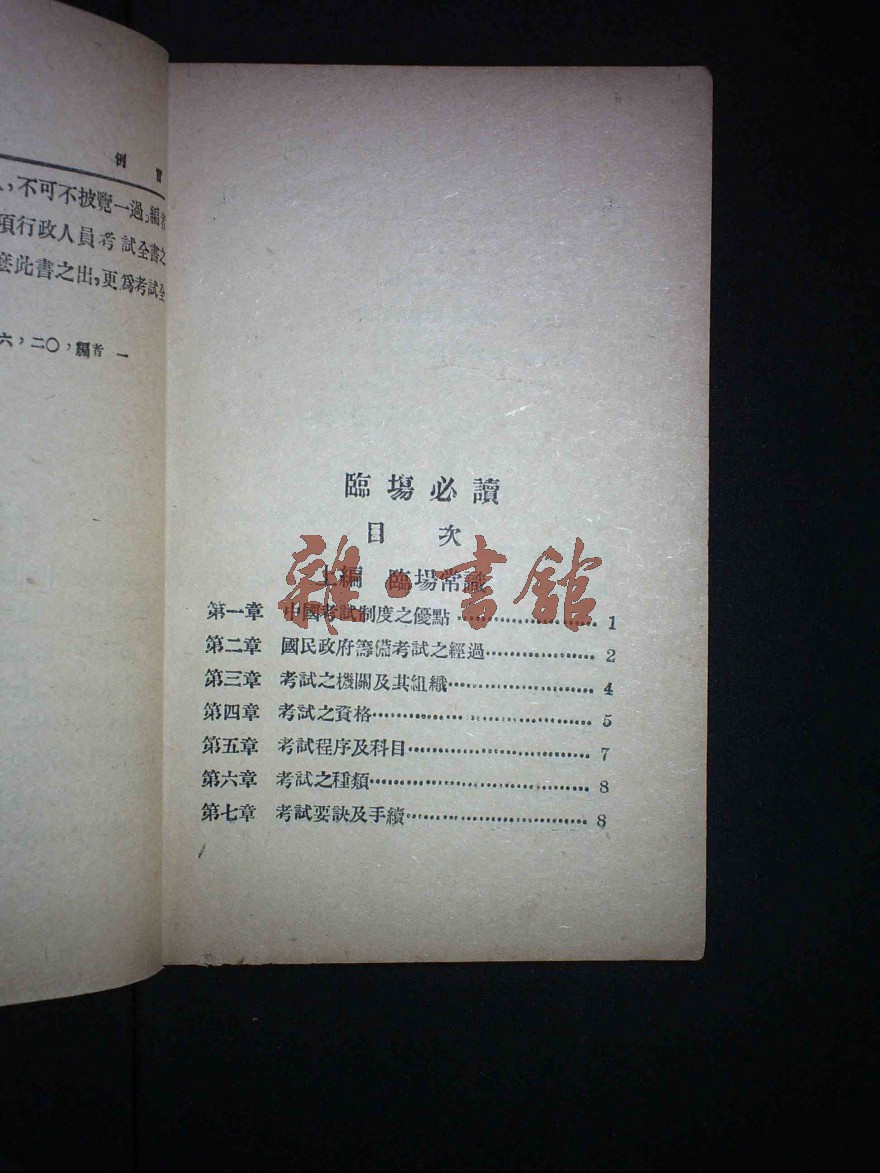 例言
,不可不披覽一過,編者
項行政人員考試全書之
此書之出,更爲考試全
六,二〇,編者一
臨場必讀
目次
上編 臨場常識
第一章 中國考試制度之優點 1
第二章 國民政府籌備考試之經過 2
第三章 考試之機關及其組織 4
第四章 考試之資格 5
第五章 考試程序及科目 7
第六章 考試之種類 8
第七章 考試要訣及手續 8
雜·書館